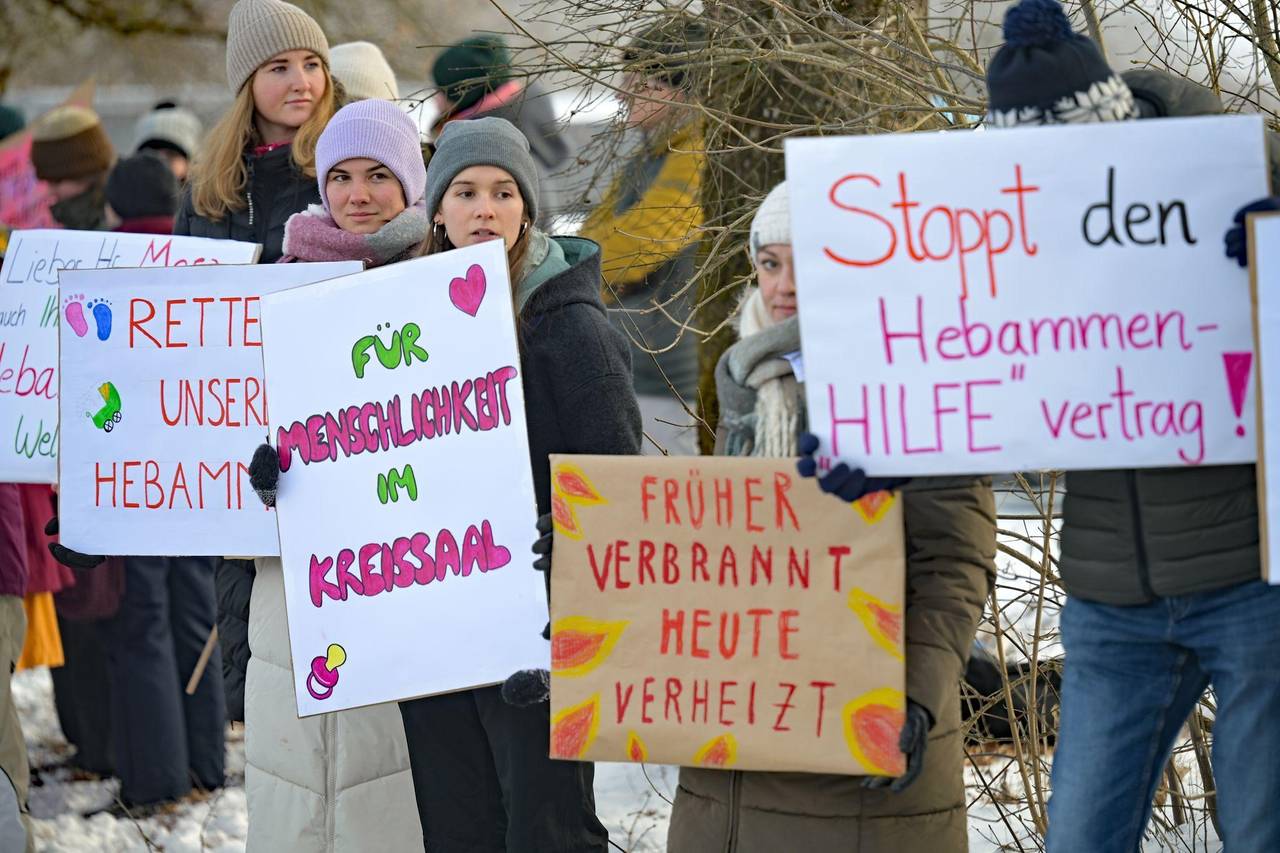 Lieber Hr. Merz
auch Ih
Heba
Wel
RETTE
UNSERE
HEBAMM
FÜR
MENSCHLICHKEIT
IM
KREISSAAL
FRÜHER
VERBRANNT
HEUTE
VERHEIZT
Stoppt den
Hebammen-
"HILFE" vertrag!